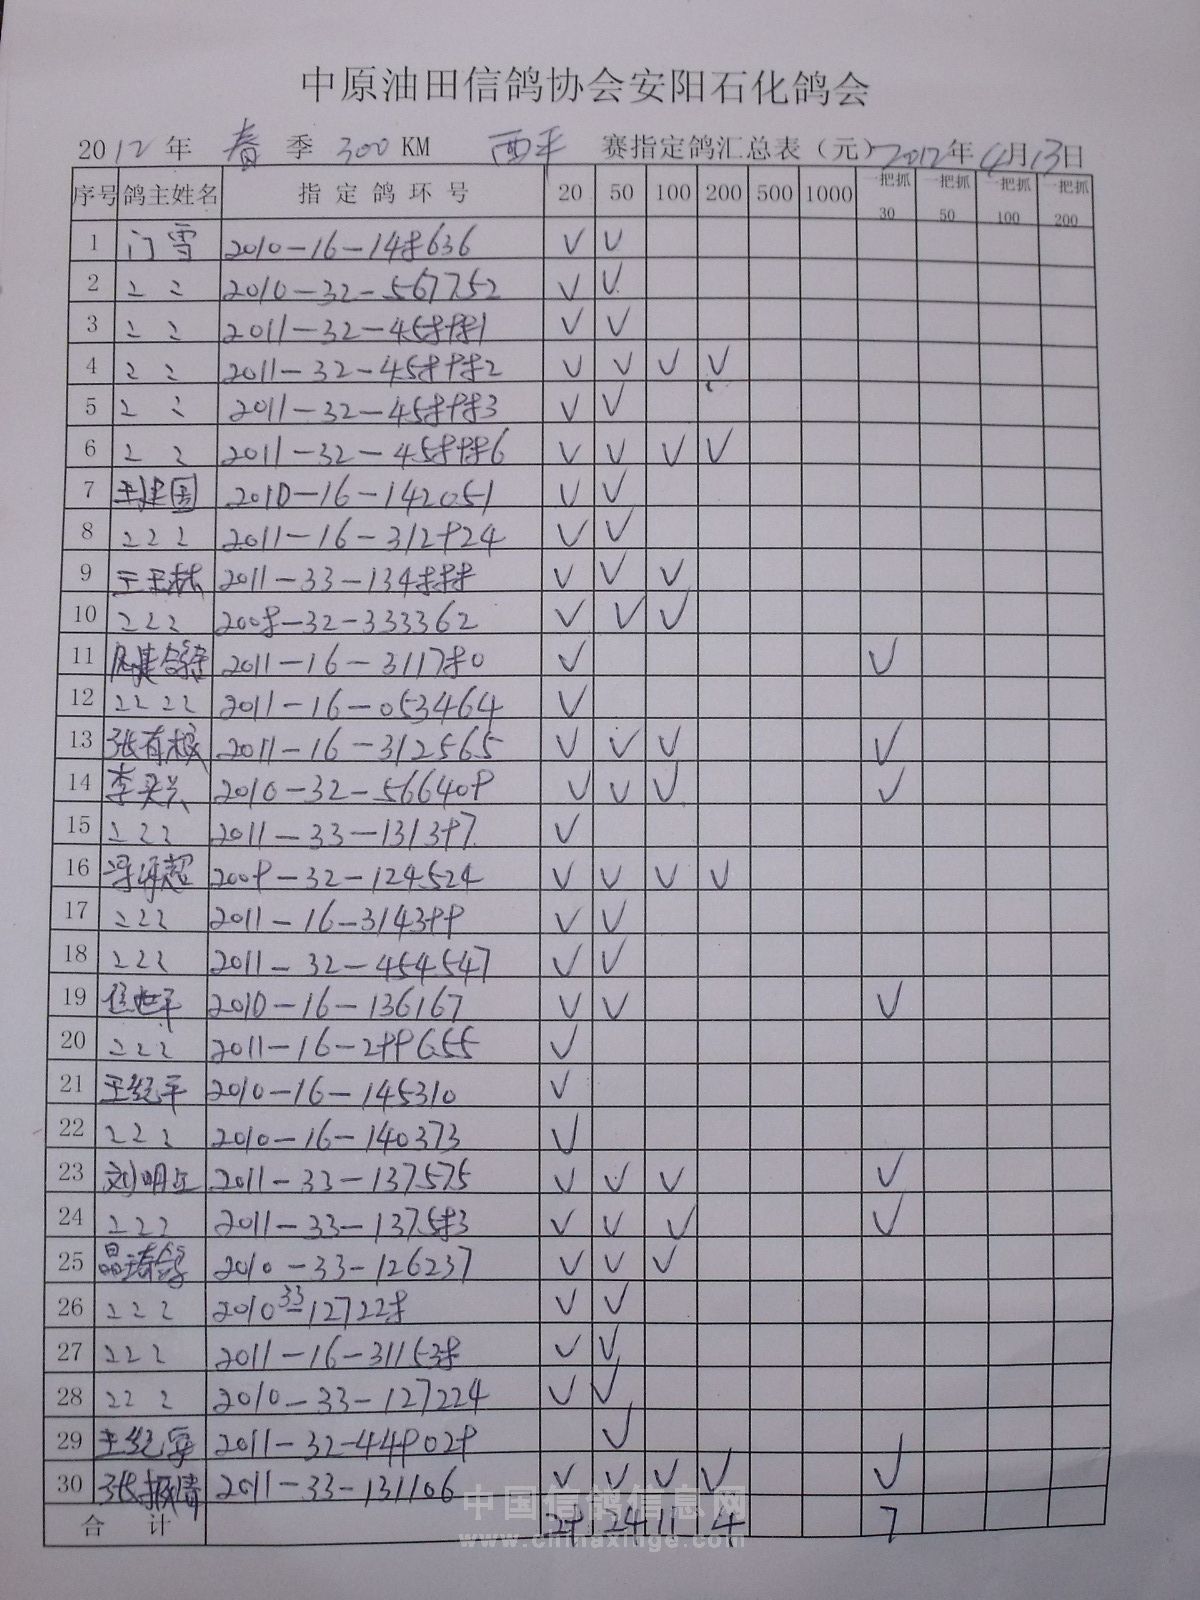 中原油田信鸽协会安阳石化鸽会
2012年 春 季 300 KM 西平 赛指定鸽汇总表（元）2012年4月13日
序号 鸽主姓名 指定鸽环号 20 50 100 200 500 1000 一把抓30 一把抓50 一把抓100 一把抓200
1 门雪 2010-16-148636 √ √
2 〃 〃 2010-32-567752 √ √
3 〃 〃 2011-32-458981 √ √
4 〃 〃 2011-32-458982 √ √ √ √
5 〃 〃 2011-32-458983 √ √
6 〃 〃 2011-32-458986 √ √ √ √
7 王建国 2010-16-142051 √ √
8 〃 〃 〃 2011-16-312924 √ √
9 王玉林 2011-33-134888 √ √ √
10 〃 〃 〃 2008-32-333362 √ √ √
11 2011-16-311780 √ √
12 〃 〃 〃 〃 2011-16-053464 √
13 张有根 2011-16-312565 √ √ √ √
14 李兴 2010-32-566409 √ √ √ √
15 〃 〃 〃 2011-33-131397 √
16 超 2009-32-124524 √ √ √ √
17 〃 〃 〃 2011-16-314399 √ √
18 〃 〃 〃 2011-32-454547 √ √
19 任世平 2010-16-136167 √ √ √
20 〃 〃 〃 2011-16-299655 √
21 王纪平 2010-16-145310 √
22 〃 〃 〃 2010-16-140373 √
23 刘明 2011-33-137575 √ √ √ √
24 〃 〃 〃 2011-33-137583 √ √ √ √
25 晶涛鸽 2010-33-126237 √ √ √
26 〃 〃 〃 2010-33-127228 √ √
27 〃 〃 〃 2011-16-311538 √ √
28 〃 〃 〃 2010-33-127224 √ √
29 王纪军 2011-32-449029 √ √
30 张振清 2011-33-131106 √ √ √ √ √
合计 29 24 11 4 7
中国信鸽信息网
www.chinaxinge.com